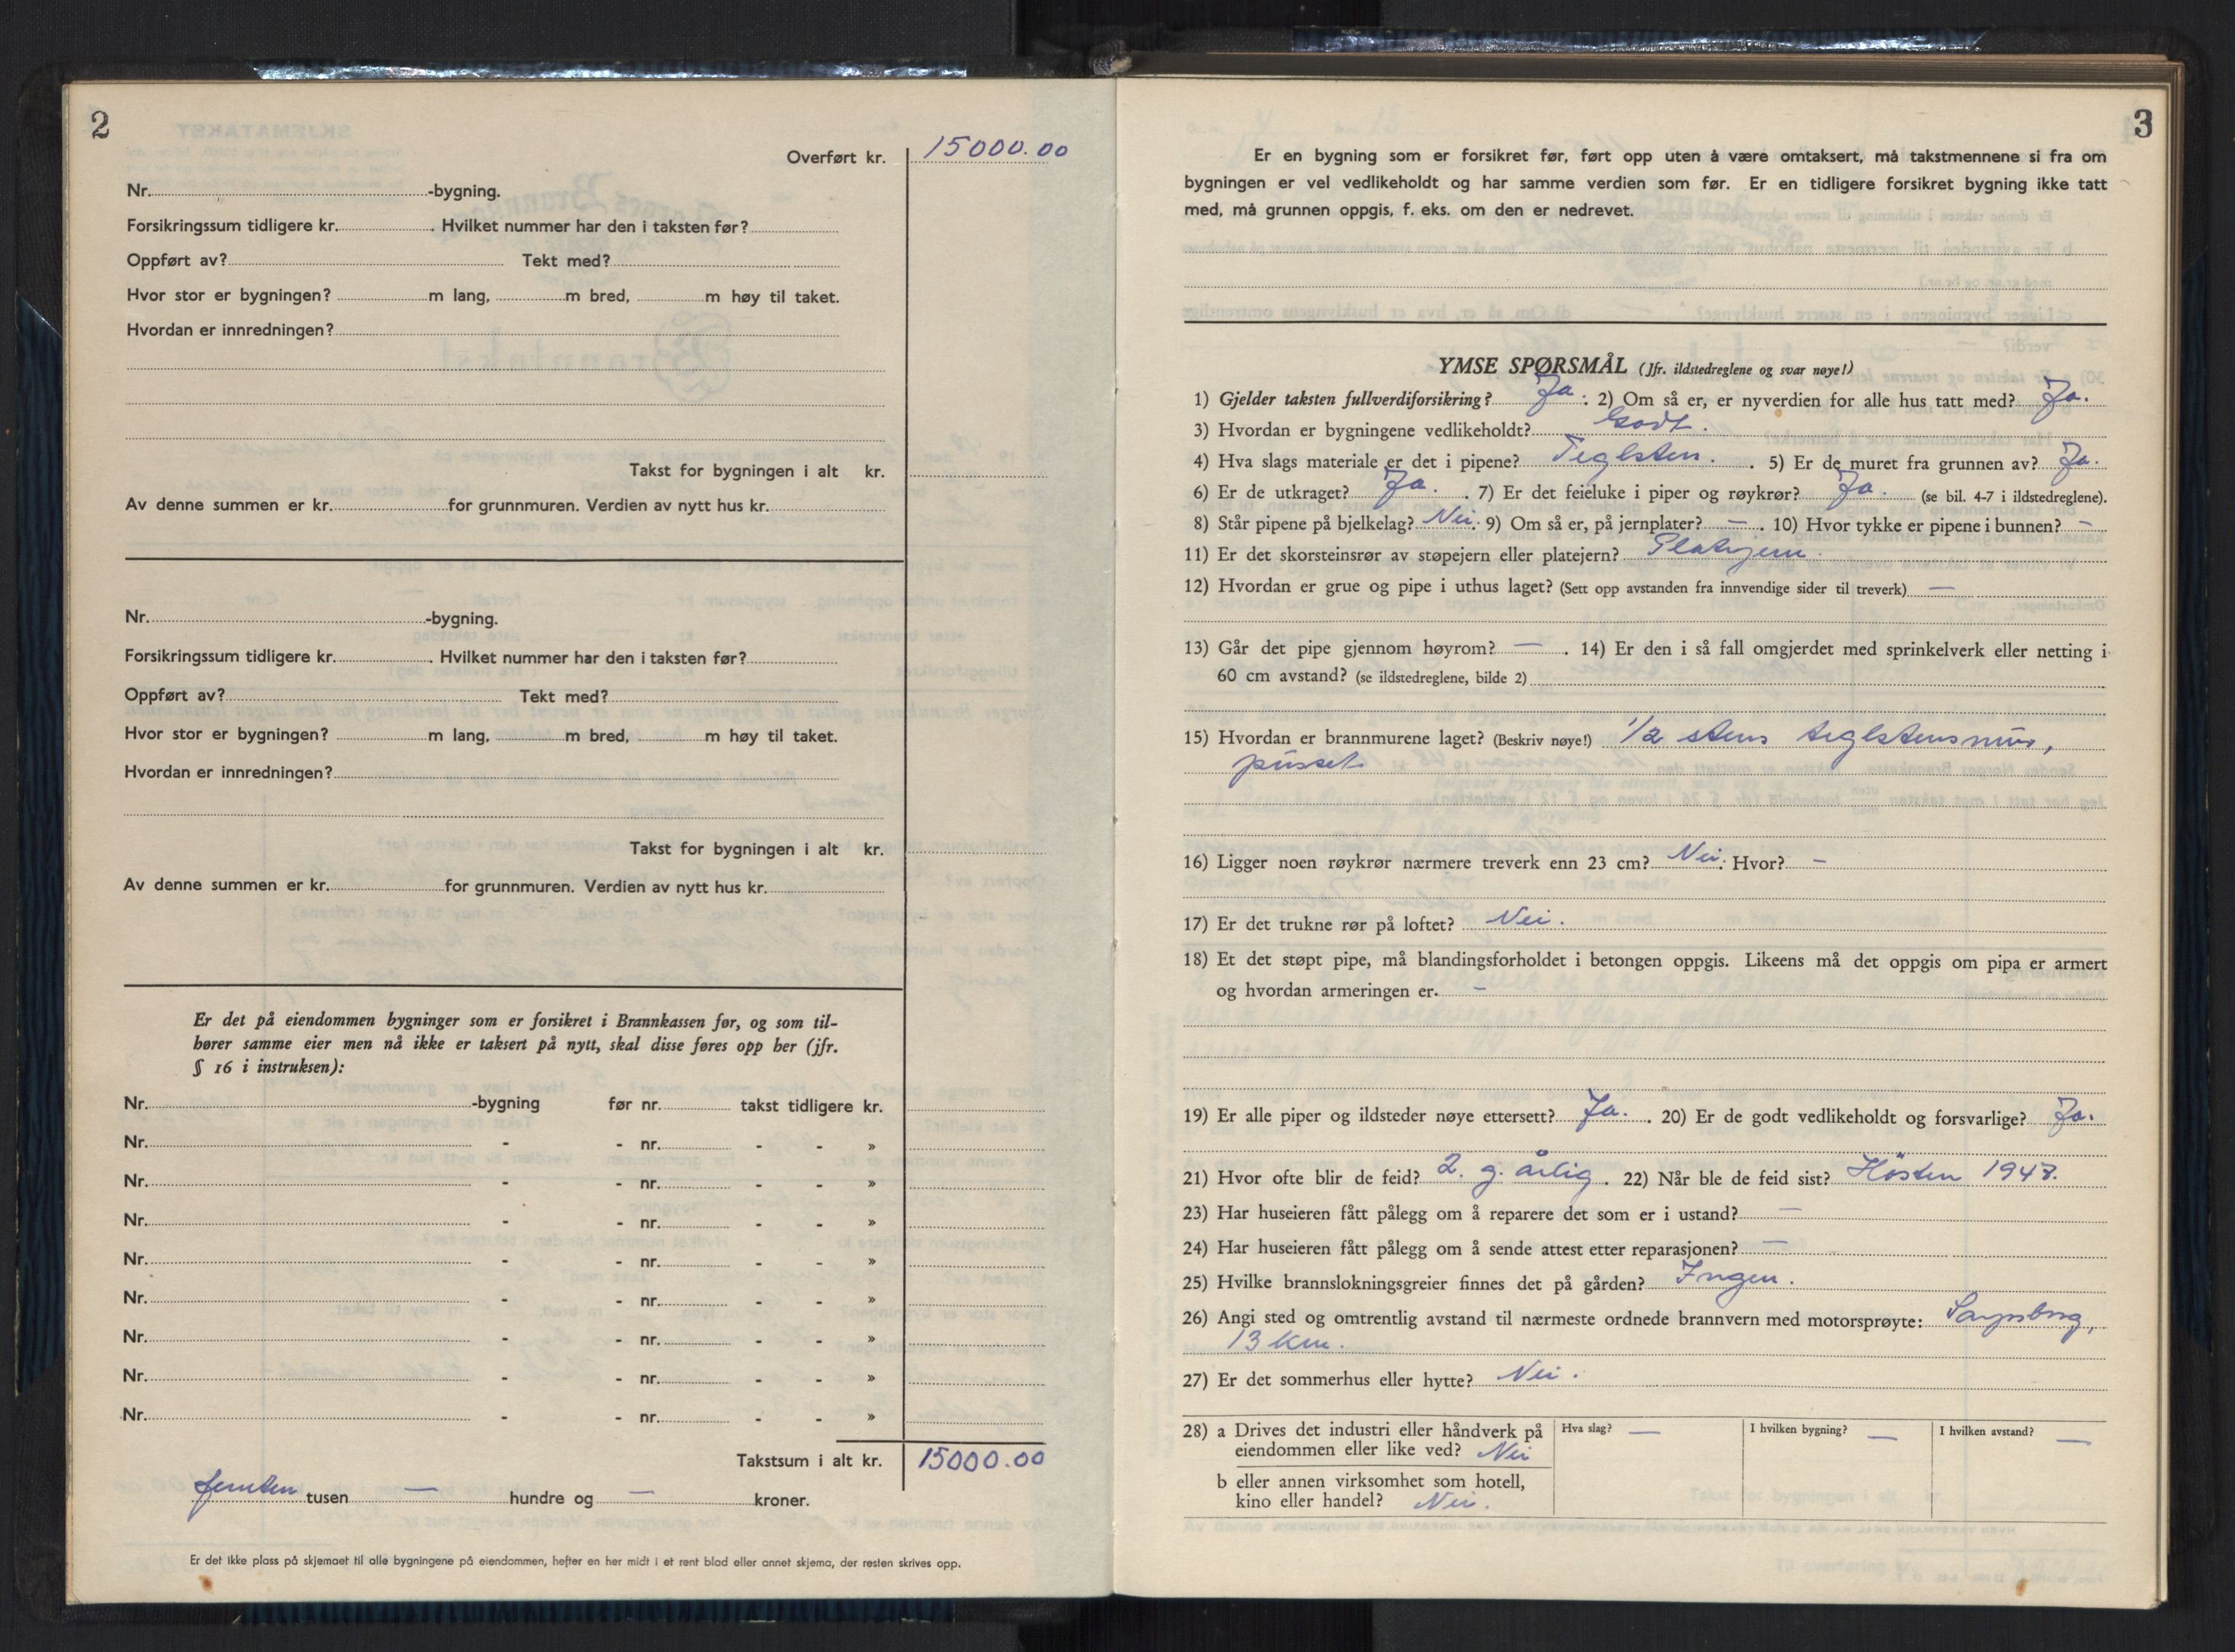 2
Overført kr. 15000.00
Nr. -bygning.
Forsikringssum tidligere kr. . Hvilket nummer har den i taksten før?
Oppført av? Tekt med?
Hvor stor er bygningen? m lang, m bred, m høy til taket.
Hvordan er innredningen?
Takst for bygningen i alt kr.
Av denne summen er kr. for grunnmuren. Verdien av nytt hus kr.
Nr. -bygning.
Forsikringssum tidligere kr. . Hvilket nummer har den i taksten før?
Oppført av? Tekt med?
Hvor stor er bygningen? m lang, m bred, m høy til taket.
Hvordan er innredningen?
Takst for bygningen i alt kr.
Av denne summen er kr. for grunnmuren. Verdien av nytt hus kr.
Er det på eiendommen bygninger som er forsikret i Brannkassen før, og som til-
hører samme eier men nå ikke er taksert på nytt, skal disse føres opp her (jfr.
§ 16 i instruksen):
Nr. -bygning før nr. takst tidligere kr.
Nr. - - nr. - - »
Nr. - - nr. - - »
Nr. - - nr. - - »
Nr. - - nr. - - »
Nr. - - nr. - - »
Nr. - - nr. - - »
Nr. - - nr. - - »
Nr. - - nr. - - »
Takstsum i alt kr. 15000.00
femten tusen — hundre og — kroner.
Er det ikke plass på skjemaet til alle bygningene på eiendommen, hefter en her midt i et rent blad eller annet skjema, der resten skrives opp.
3
Er en bygning som er forsikret før, ført opp uten å være omtaksert, må takstmennene si fra om
bygningen er vel vedlikeholdt og har samme verdien som før. Er en tidligere forsikret bygning ikke tatt
med, må grunnen oppgis, f. eks. om den er nedrevet.
YMSE SPØRSMÅL (Jfr. ildstedreglene og svar nøye!)
1) Gjelder taksten fullverdiforsikring? Ja. 2) Om så er, er nyverdien for alle hus tatt med? Ja.
3) Hvordan er bygningene vedlikeholdt? Godt.
4) Hva slags materiale er det i pipene? Teglsten. . 5) Er de muret fra grunnen av? Ja.
6) Er de utkraget? Ja. . 7) Er det feieluke i piper og røykrør? Ja. (se bil. 4-7 i ildstedreglene).
8) Står pipene på bjelkelag? Nei. 9) Om så er, på jernplater? — . 10) Hvor tykke er pipene i bunnen? —
11) Er det skorsteinsrør av støpejern eller platejern? Platejern.
12) Hvordan er grue og pipe i uthus laget? (Sett opp avstanden fra innvendige sider til treverk) —
13) Går det pipe gjennom høyrom? — . 14) Er den i så fall omgjerdet med sprinkelverk eller netting i
60 cm avstand? (se ildstedreglene, bilde 2)
15) Hvordan er brannmurene laget? (Beskriv nøye!) 1/2 stens teglstensmur,
pusset
16) Ligger noen røykrør nærmere treverk enn 23 cm? Nei. Hvor? —
17) Er det trukne rør på loftet? Nei.
18) Et det støpt pipe, må blandingsforholdet i betongen oppgis. Likeens må det oppgis om pipa er armert
og hvordan armeringen er. —
19) Er alle piper og ildsteder nøye ettersett? Ja. . 20) Er de godt vedlikeholdt og forsvarlige? Ja.
21) Hvor ofte blir de feid? 2. g. årlig . 22) Når ble de feid sist? Hösten 1947.
23) Har huseieren fått pålegg om å reparere det som er i ustand? —
24) Har huseieren fått pålegg om å sende attest etter reparasjonen? —
25) Hvilke brannslokningsgreier finnes det på gården? Ingen.
26) Angi sted og omtrentlig avstand til nærmeste ordnede brannvern med motorsprøyte: Sarpsborg,
13 km.
27) Er det sommerhus eller hytte? Nei.
28) a Drives det industri eller håndverk på Hva slag? — I hvilken bygning? — I hvilken avstand? —
eiendommen eller like ved? Nei
b eller annen virksomhet som hotell,
kino eller handel? Nei.